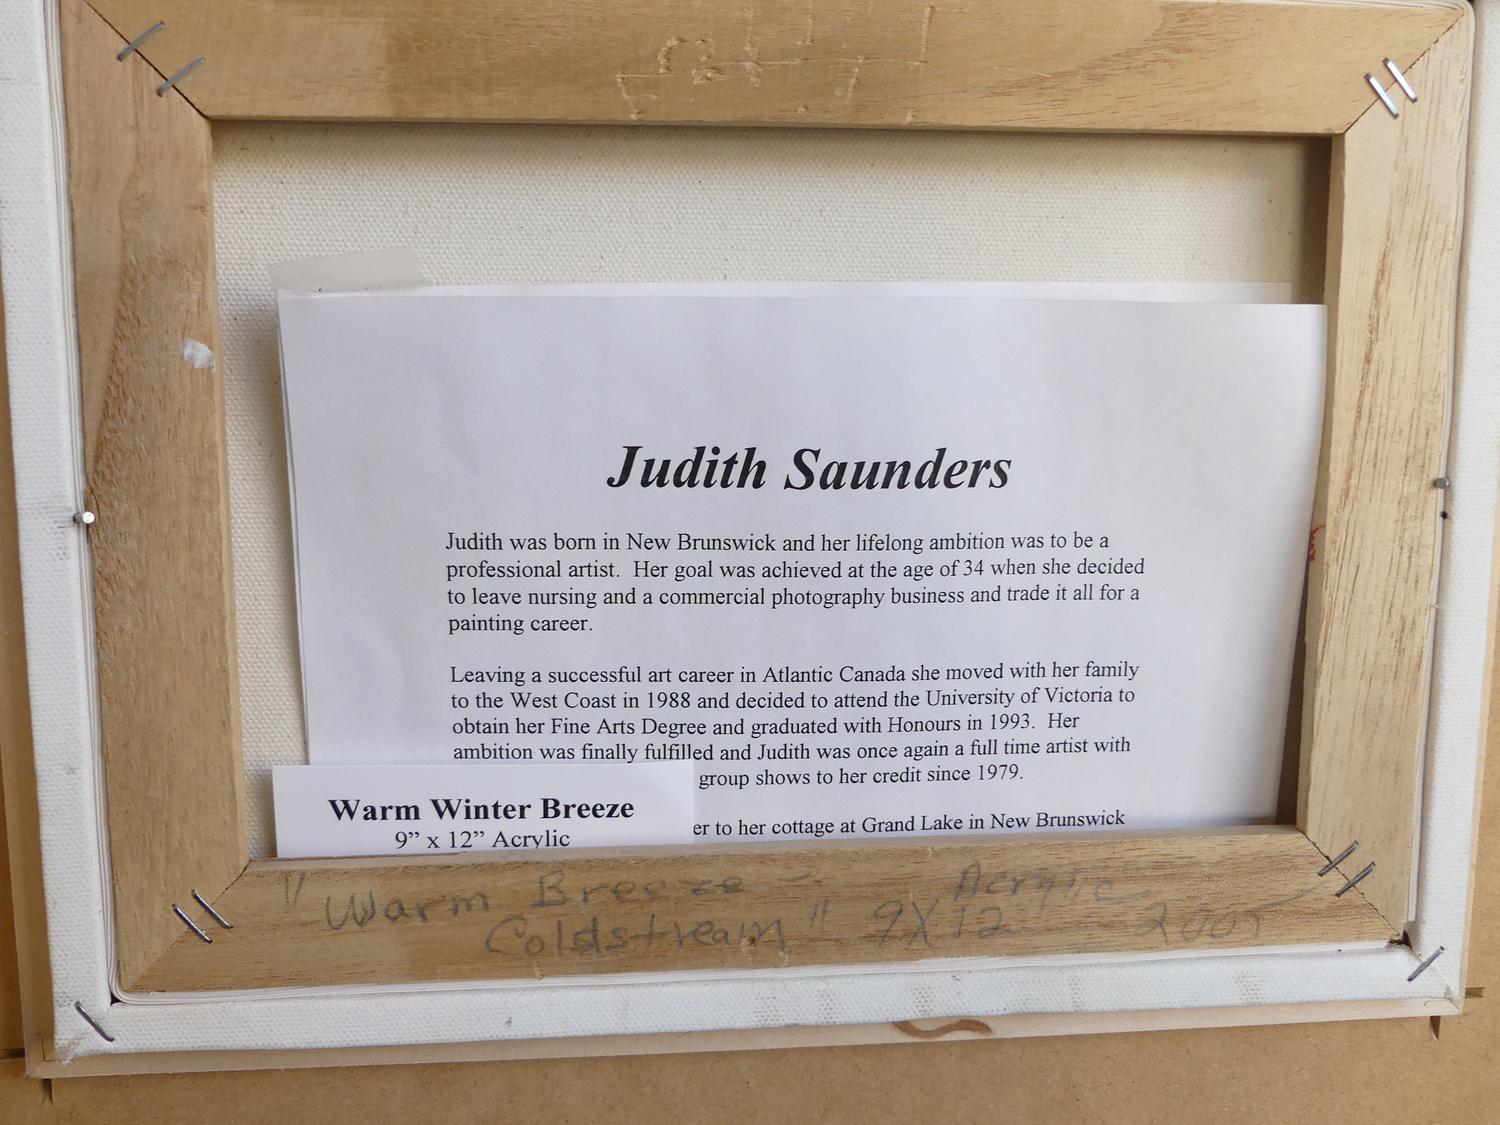 Judith Saunders
Judith was born in New Brunswick and her lifelong ambition was to be a
professional artist.  Her goal was achieved at the age of 34 when she decided
to leave nursing and a commercial photography business and trade it all for a
painting career.
Leaving a successful art career in Atlantic Canada she moved with her family
to the West Coast in 1988 and decided to attend the University of Victoria to
obtain her Fine Arts Degree and graduated with Honours in 1993.  Her
ambition was finally fulfilled and Judith was once again a full time artist with
group shows to her credit since 1979.
er to her cottage at Grand Lake in New Brunswick
Warm Winter Breeze
9” x 12” Acrylic
"Warm Breeze - Acrylic
Coldstream" 9X12 2005